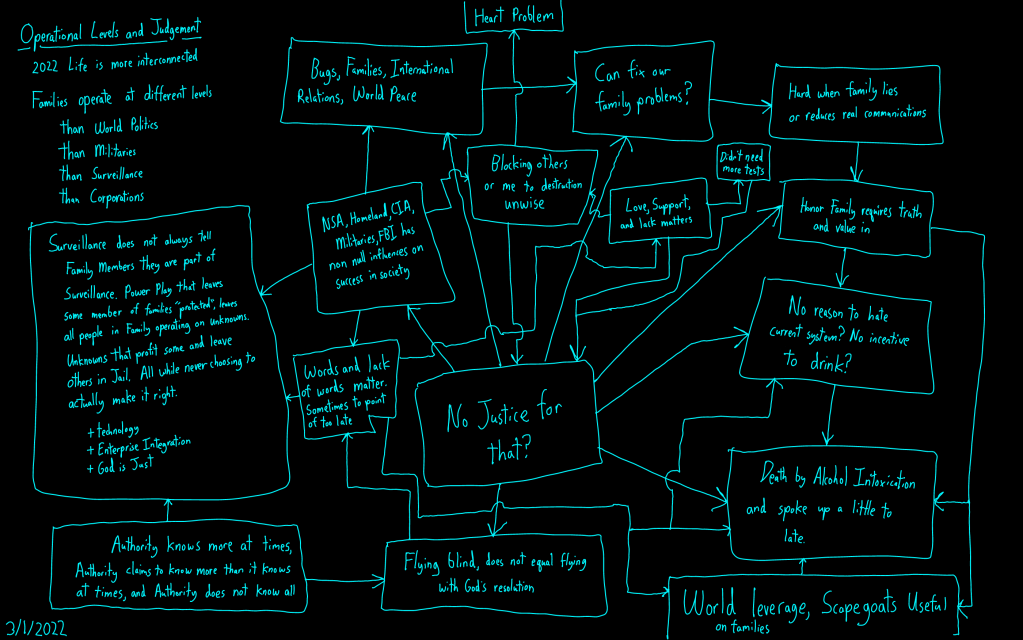 Operational Levels and Judgement
2022 Life is more interconnected
Families operate at different levels
than World Politics
than Militaries
than Surveillance
than Corporations
Heart Problem
Bugs, Families, International
Relations, World Peace
Can fix our
family problems?
Hard when family lies
or reduces real communications
Blocking others
or me to destruction
unwise
Didn't need
more tests
NSA, Homeland, CIA,
Militaries, FBI has
non null influences on
success in society
Love, Support,
and lack matters
Honor Family requires truth
and value in
Surveillance does not always tell
Family Members they are part of
Surveillance. Power Play that leaves
some member of families "protected", leaves
all people in Family operating on unknowns.
Unknowns that profit some and leave
others in Jail. All while never choosing to
actually make it right.
+ technology
+ Enterprise Integration
+ God is Just
No reason to hate
current system? No incentive
to drink?
Words and lack
of words matter.
Sometimes to point
of too late
No Justice for
that?
Death by Alcohol Intoxication
and spoke up a little to
late.
Authority knows more at times,
Authority claims to know more than it knows
at times, and Authority does not know all
Flying blind, does not equal flying
with God's resolution
World leverage, Scapegoats Useful
on families
3/1/2022